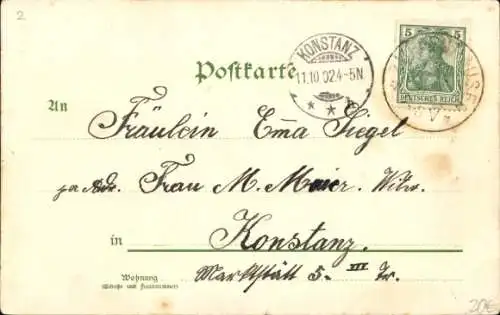 2
5
DEUTSCHES REICH
KONSTANZ
11.10.02.4-5N
* * b
Postkarte
An
Fräulein Emma Siegel
pr. Adr. Frau M. Maier. Witw.
in Konstanz.
Marktstätt 5. III Tr.
Wohnung
(Straße und Hausnummer)
20€